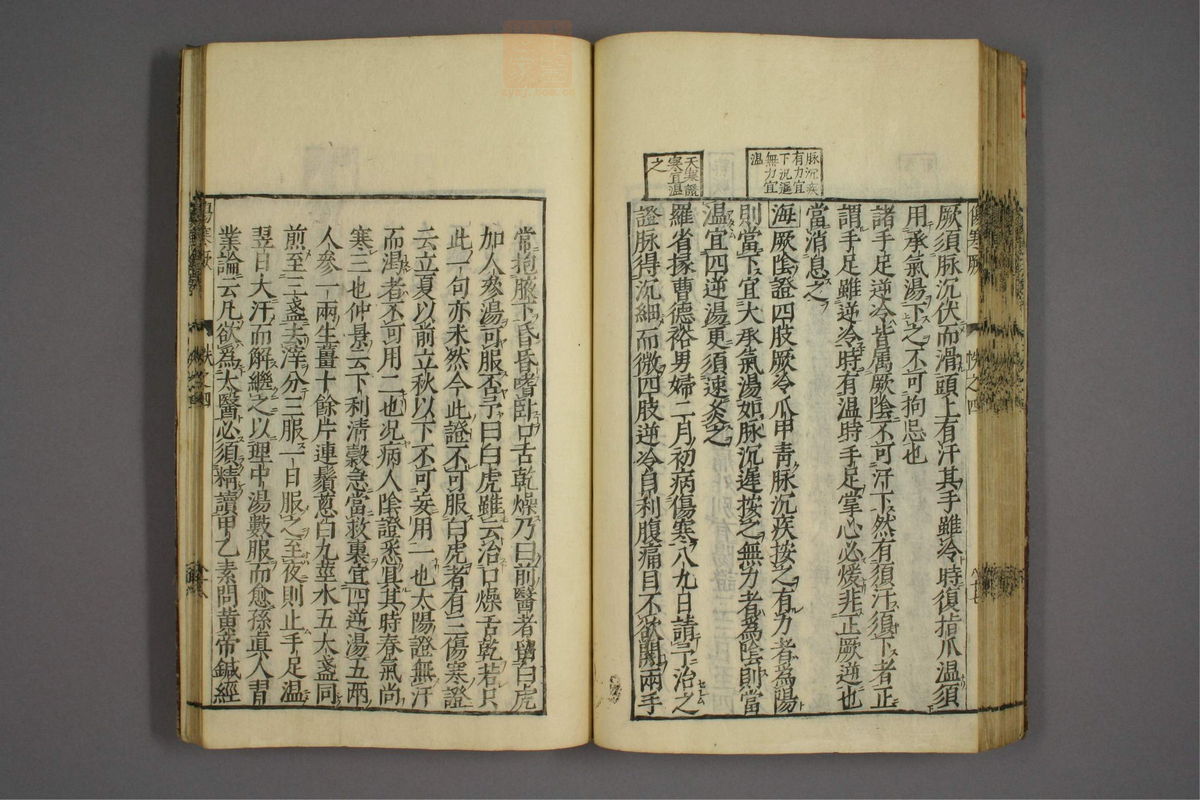 厥須脉沉伏而滑頭上有汗其手雖冷時復指爪温須
用承氣湯下之不可拘忌也
諸手足逆冷皆属厥陰不可汗下然有須汗須下者正
謂手足雖逆冷時有温時手足掌心必煖非正厥逆也
當消息之
脉沉疾
有力宜
下沉遲
無力宜
温
海厥陰證四肢厥冷爪甲青脉沉疾按之有力者為陽
則當下宜大承氣湯如脉沉遲按之無力者為陰則當
温宜四逆湯更須速灸之
天寒證
寒宜温
之
羅省掾曹德裕男婦二月初病傷寒八九日請予治之
證脉得沉細而微四肢逆冷自利腹痛目不欲開兩手
常抱腋下昏昏嗜卧口舌乾燥乃曰前醫者留白虎
加人參湯可服否予曰白虎雖云治口燥舌乾若只
此一句亦未然今此證不可服白虎者有三傷寒證
云立夏以前立秋以下不可妄用一也太陽證無汗
而渴者不可用二也况病人陰證悉具其時春氣尚
寒三也仲景云下利清穀急當救裏宜四逆湯五兩
人參一兩生薑十餘片連鬚葱白九莖水五大盞同
煎至三盞去滓分三服一日服之至夜則止手足温
翌日大汗而解繼之以理中湯數服而愈孫真人習
業論云凡欲為大醫必須精讀甲乙素問黄帝鍼經